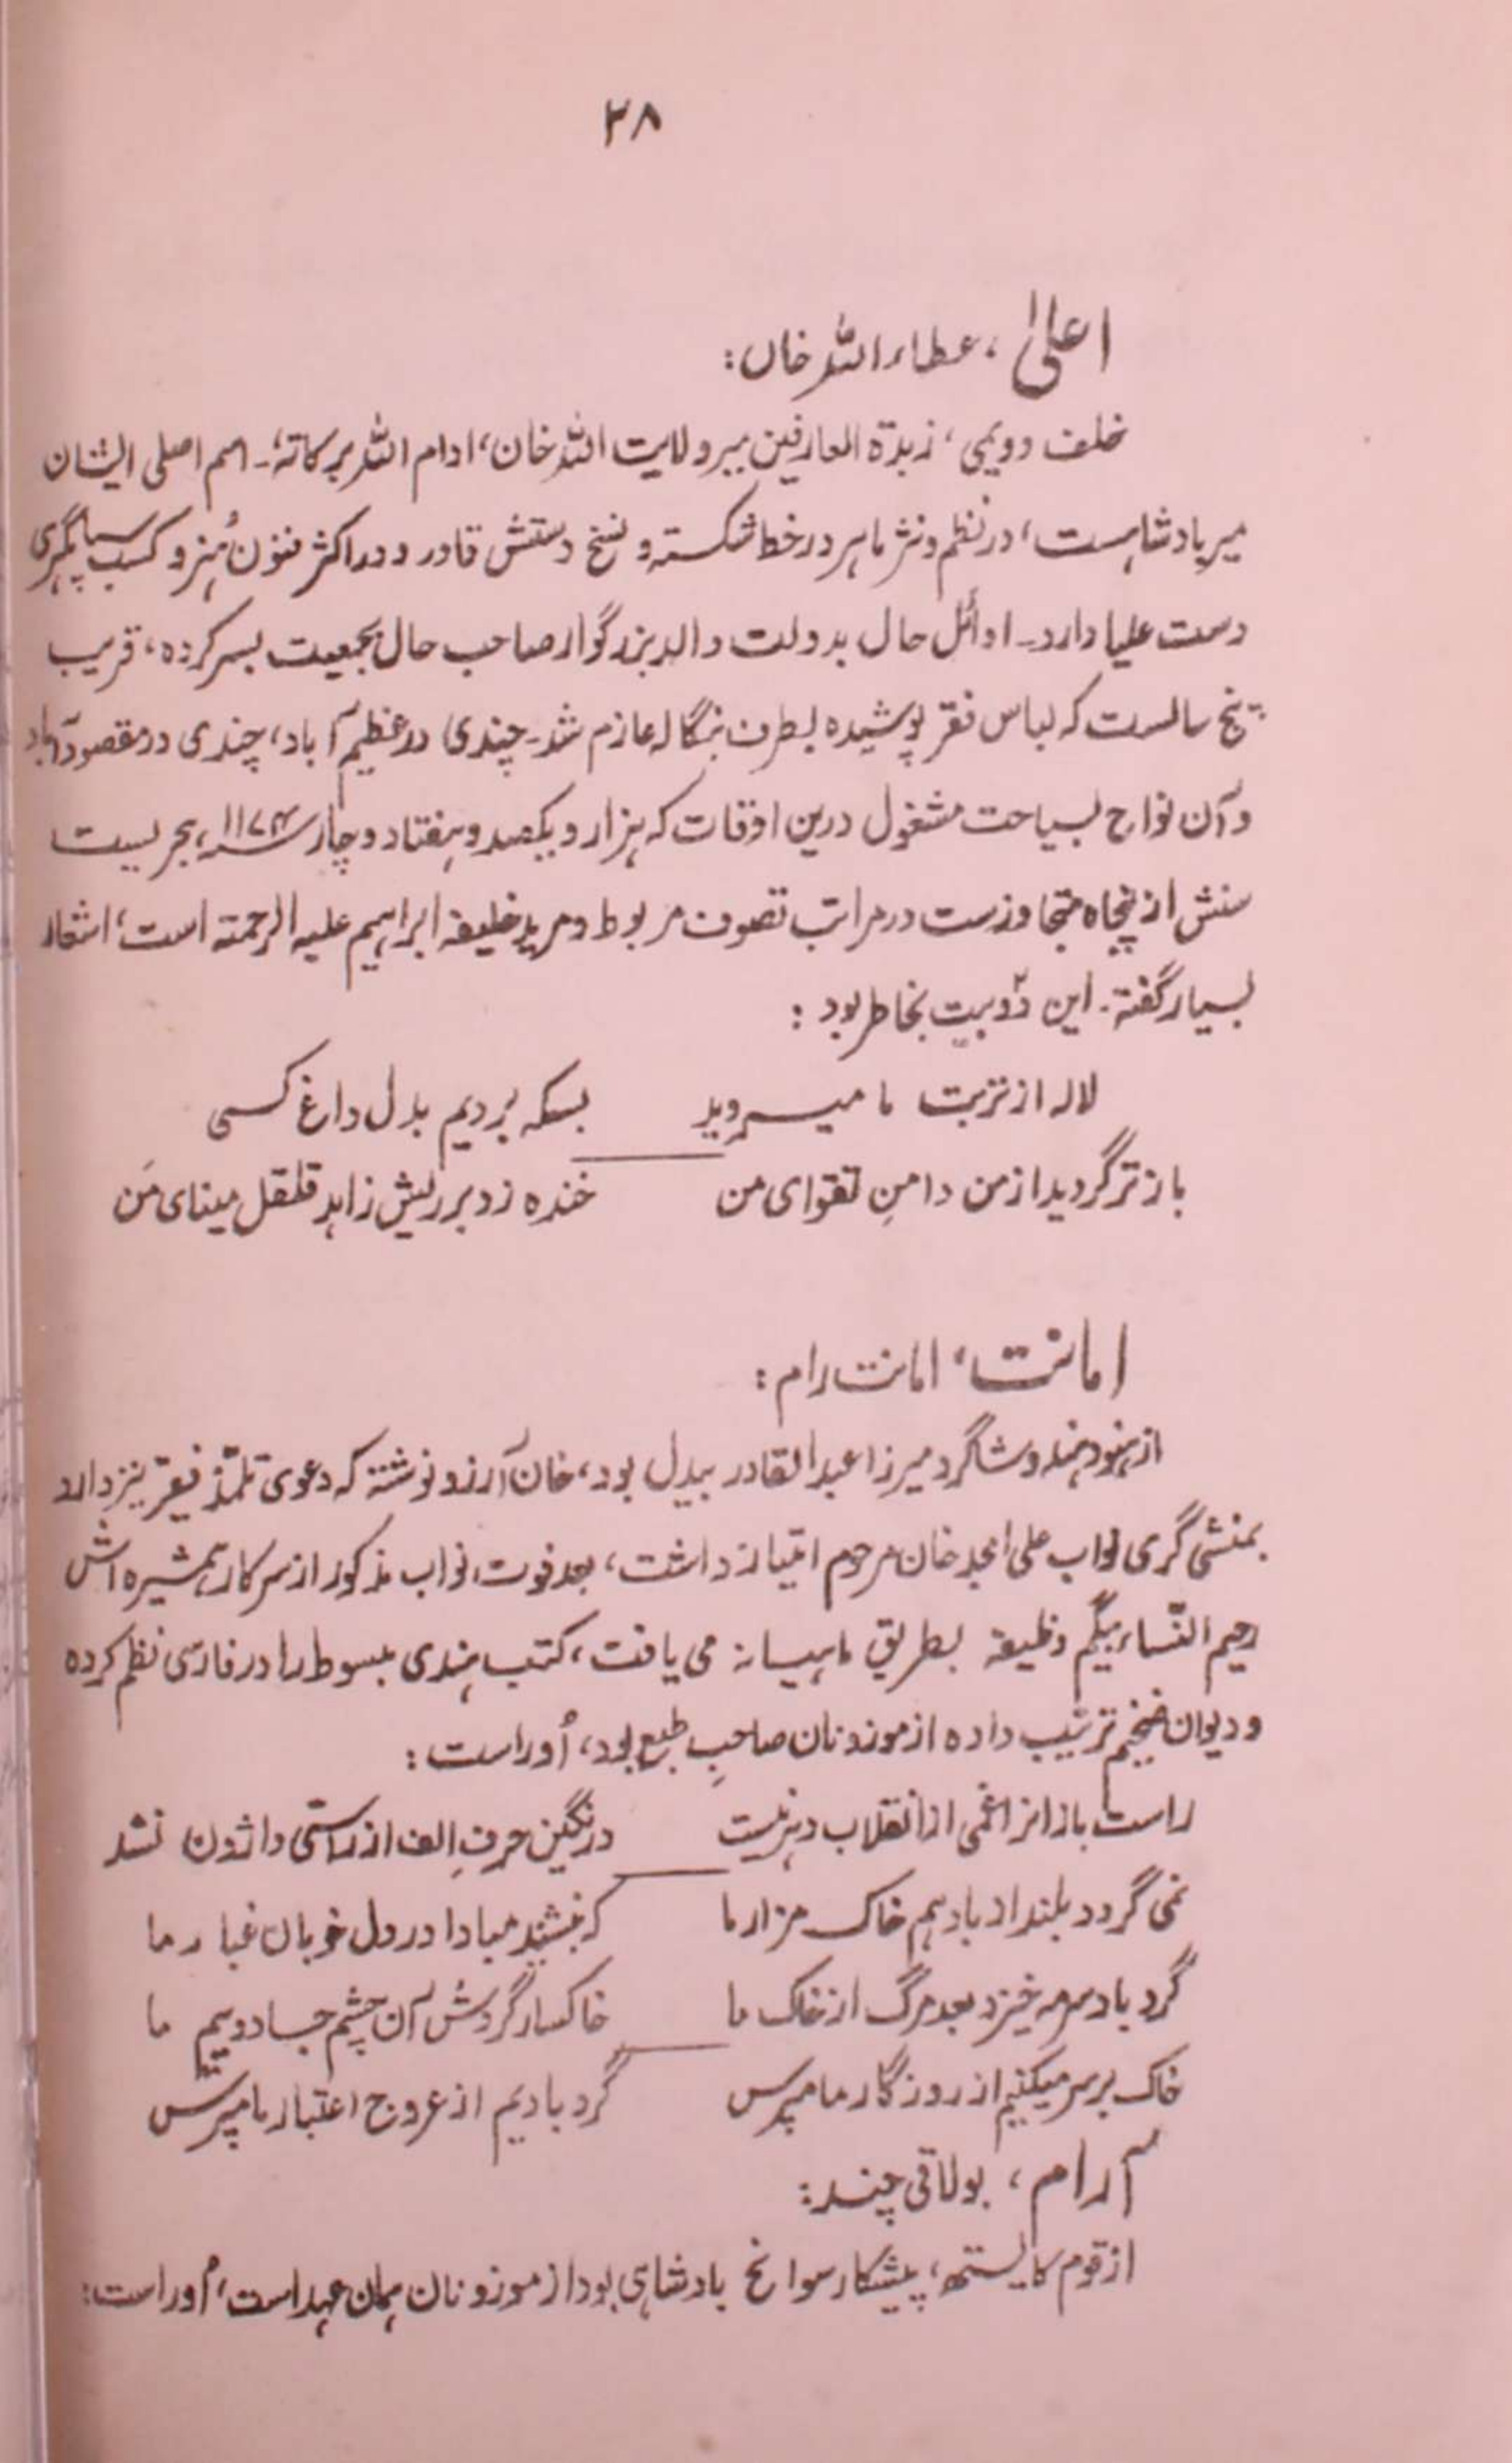 ۲۸
اعلیٰ ، عطاء اللہ خاں :
خلف دویمی ، زبدۃ العارفین میر ولایت اللہ خان، ادام اللہ برکاتہٗ۔ اسم اصلی ایشان
میر بادشاہست، در نظم و نثر ماہر در خط شکستہ و نسخ دستش قادر و در اکثر فنون ہُنر و کسب سپاہگری
دست علیا دارد۔ اوائل حال بدولت والد بزرگوار صاحب حال بجمعیت بسر کردہ، قریب
پنج سالست کہ لباس فقر پوشیدہ بطرف بنگالہ عازم شد۔ چندی در عظیم آباد، چندی در مقصود آباد
و آن نواح بسیاحت مشغول درین اوقات کہ ہزار و یکصد و ہفتاد و چار ۱۱۷۴ ہجریست
سنش از پنجاہ متجاوزست در مراتب تصوف مربوط و مرید خلیفہ ابراہیم علیہ الرحمتہ است، اشعار
بسیار گفتہ۔ این دوبیت بخاطر بود :
لالہ از تربت ما میروید بسکہ بُردیم بدل داغ کسی
باز تر گردید از من دامنِ تقوای من خندہ زد بر ریش زاہد قلقل مینای من
امانت، امانت رام :
از ہنود ہند و شاگرد میرزا عبدالقادر بیدل بود، خان آرزو نوشتہ کہ دعوی تلمّذ فقیر نیز دارد
بمنشی گری نواب علی امجد خان مرحوم امتیاز داشت، بعد فوت نواب مذکور از سرکار ہمشیرہ اش
رحیم النّساء بیگم وظیفہ بطریق ماہیانہ می یافت، کتب ہندی مبسوط را در فارسی نظم کردہ
و دیوان ضخیم ترتیب دادہ از موزونان صاحبِ طبع بود، اُو راست :
راست بازانرا غمی از انقلاب دہر نیست در نگین حرفِ الف از راستی واژون نشد
نمی گردد بلند از باد ہم خاک مزار ما کہ ننشیند مبادا در دل خوبان غبار ما
گرد باد سرمہ خیزد بعد مرگ از خاک ما خاکسار گردشِ آن چشم جادوییم ما
خاک بر سر میکنیم از روزگار ما مپرس گرد بادیم از عروج اعتبار ما مپرس
آرام ، بولاقی چند :
از قوم کایستھ، پیشکار سوانح بادشاہی بود از موزونان ہمان عہد است، اُو راست :